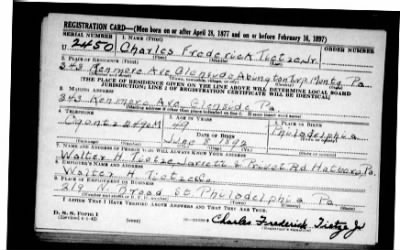 REGISTRATION CARD—(Men born on or after April 28, 1877 and on or before February 16, 1897)
SERIAL NUMBER 1. NAME (Print) ORDER NUMBER
U. 2450 Charles Frederick Tietze Jr.
(First) (Middle) (Last)
2. PLACE OF RESIDENCE (Print)
343 Kenmore Ave Glenside Abington Twp. Montg Pa.
(Number and street) (Town, township, village, or city) (County) (State)
[THE PLACE OF RESIDENCE GIVEN ON THE LINE ABOVE WILL DETERMINE LOCAL BOARD
JURISDICTION; LINE 2 OF REGISTRATION CERTIFICATE WILL BE IDENTICAL]
3. MAILING ADDRESS
343 Kenmore Ave. Glenside Pa.
4. TELEPHONE 5. AGE IN YEARS 6. PLACE OF BIRTH
Ogontz 49 Philadelphia
DATE OF BIRTH
1892
7. NAME AND ADDRESS OF PERSON WHO WILL ALWAYS KNOW YOUR ADDRESS
Walter H. Tietze Jarrett & Privet Rd Hatboro, Pa.
8. EMPLOYER'S NAME AND ADDRESS
Walter H. Tietze Co.
9. PLACE OF EMPLOYMENT OR BUSINESS
219 N. Broad St. Philadelphia Pa
I AFFIRM THAT I HAVE VERIFIED ABOVE ANSWERS AND THAT THEY ARE TRUE.
D. S. S. FORM 1
(Revised 4-1-42)
Charles Frederick Tietze Jr